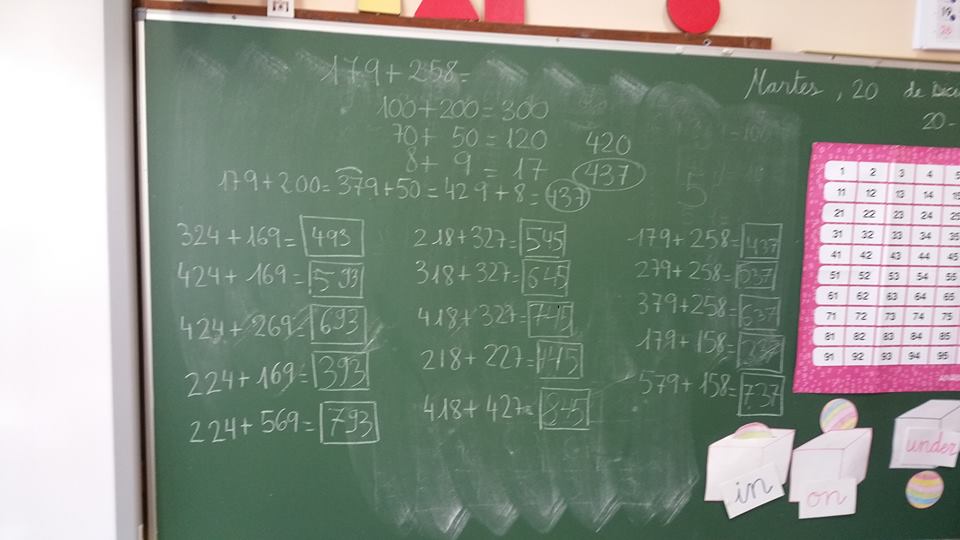 179+258=
100+200=300
70+ 50=120 420
8+ 9 = 17 437
179+200=379+50=429+8=437
324+169= 493
424+169= 593
424+269= 693
224+169= 393
224+569= 793
218+327= 545
318+327= 645
418+327= 745
218+227= 445
418+427= 845
179+258= 437
279+258= 537
379+258= 637
179+158=
579+158= 737
Martes, 20 de
20-
1 2 3 4 5
11 12 13 14 15
21 22 23 24 25
31 32 33 34 35
41 42 43 44 45
51 52 53 54 55
61 62 63 64 65
71 72 73 74 75
81 82 83 84 85
91 92 93 94 95
in
on
under